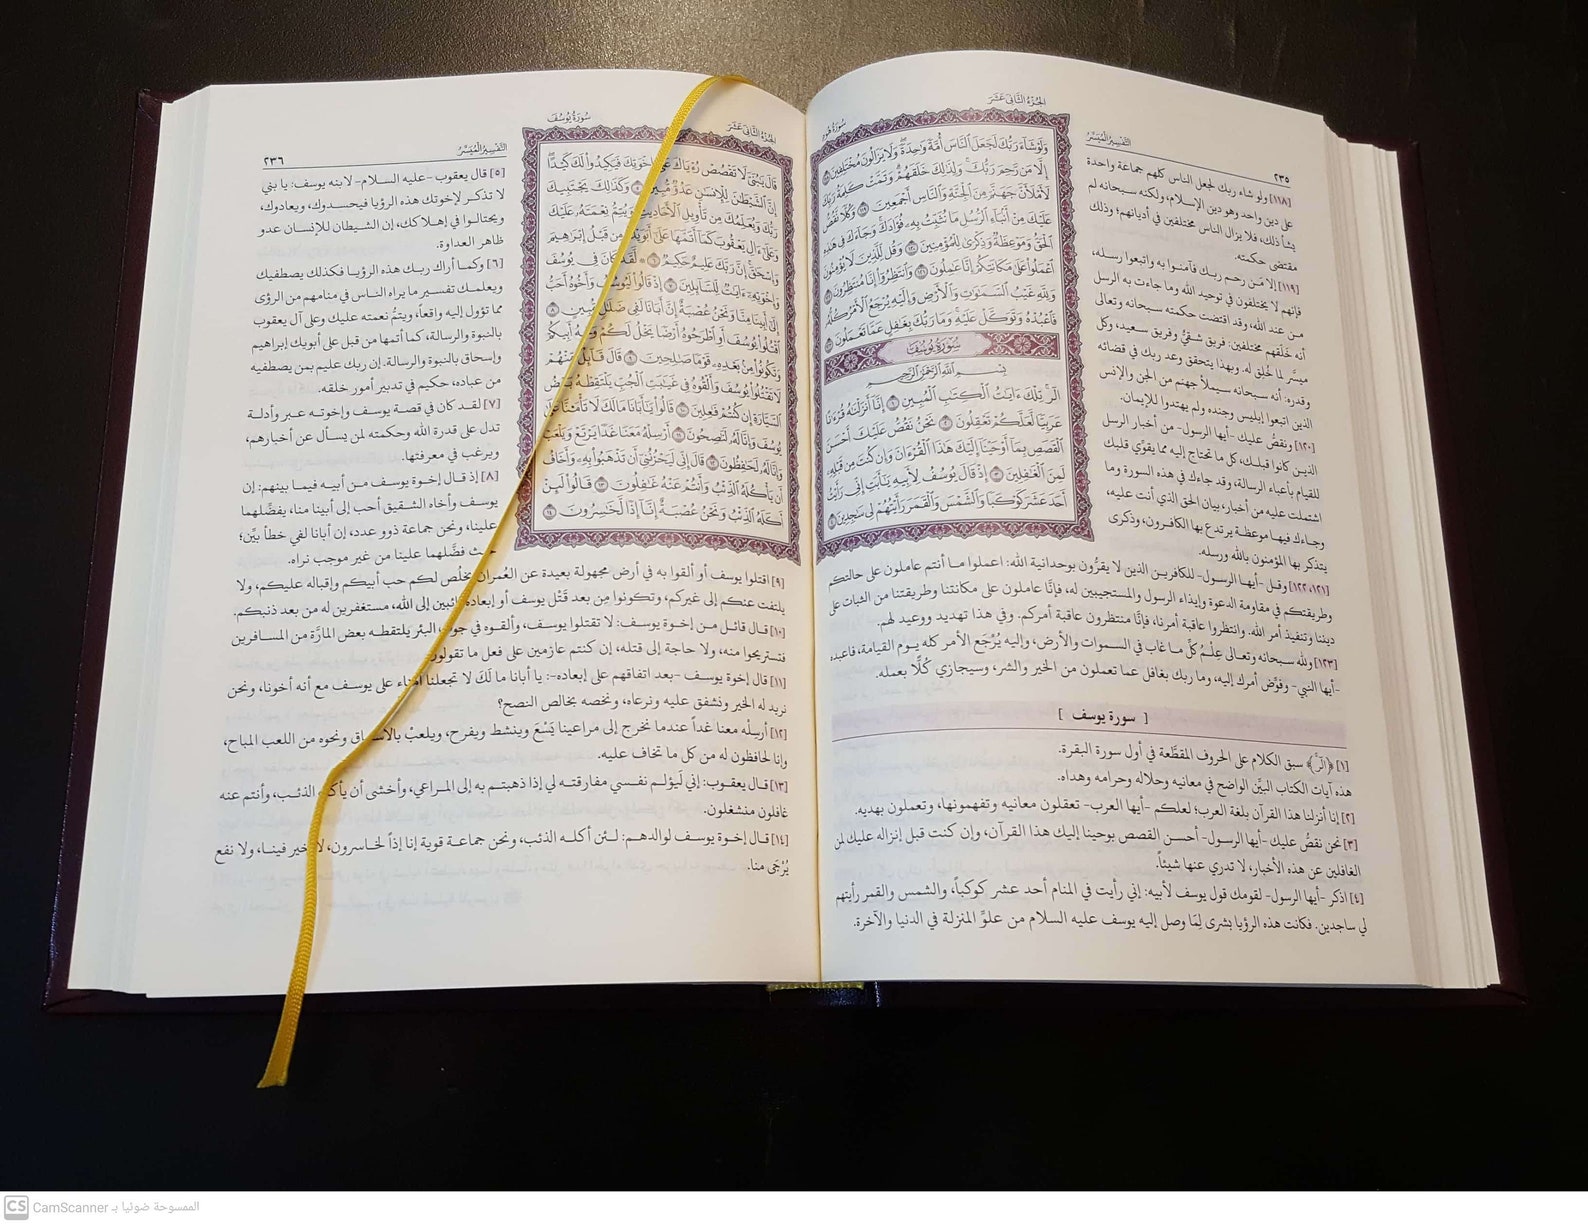 الجزء الثاني عشر
سورة هود
وَلَوْ شَآءَ رَبُّكَ لَجَعَلَ ٱلنَّاسَ أُمَّةً وَٰحِدَةً ۖ وَلَا يَزَالُونَ مُخْتَلِفِينَ ١١٨
إِلَّا مَن رَّحِمَ رَبُّكَ ۚ وَلِذَٰلِكَ خَلَقَهُمْ ۗ وَتَمَّتْ كَلِمَةُ رَبِّكَ
لَأَمْلَأَنَّ جَهَنَّمَ مِنَ ٱلْجِنَّةِ وَٱلنَّاسِ أَجْمَعِينَ ١١٩ وَكُلًّا نَّقُصُّ
عَلَيْكَ مِنْ أَنۢبَآءِ ٱلرُّسُلِ مَا نُثَبِّتُ بِهِۦ فُؤَادَكَ ۚ وَجَآءَكَ فِى هَٰذِهِ
ٱلْحَقُّ وَمَوْعِظَةٌ وَذِكْرَىٰ لِلْمُؤْمِنِينَ ١٢٠ وَقُل لِّلَّذِينَ لَا يُؤْمِنُونَ
ٱعْمَلُوا۟ عَلَىٰ مَكَانَتِكُمْ إِنَّا عَٰمِلُونَ ١٢١ وَٱنتَظِرُوٓا۟ إِنَّا مُنتَظِرُونَ ١٢٢
وَلِلَّهِ غَيْبُ ٱلسَّمَٰوَٰتِ وَٱلْأَرْضِ وَإِلَيْهِ يُرْجَعُ ٱلْأَمْرُ كُلُّهُۥ
فَٱعْبُدْهُ وَتَوَكَّلْ عَلَيْهِ ۚ وَمَا رَبُّكَ بِغَٰفِلٍ عَمَّا تَعْمَلُونَ ١٢٣
سُورَةُ يُوسُفَ
بِسْمِ ٱللَّهِ ٱلرَّحْمَٰنِ ٱلرَّحِيمِ
الٓر ۚ تِلْكَ ءَايَٰتُ ٱلْكِتَٰبِ ٱلْمُبِينِ ١ إِنَّآ أَنزَلْنَٰهُ قُرْءَٰنًا
عَرَبِيًّا لَّعَلَّكُمْ تَعْقِلُونَ ٢ نَحْنُ نَقُصُّ عَلَيْكَ أَحْسَنَ
ٱلْقَصَصِ بِمَآ أَوْحَيْنَآ إِلَيْكَ هَٰذَا ٱلْقُرْءَانَ وَإِن كُنتَ مِن قَبْلِهِۦ
لَمِنَ ٱلْغَٰفِلِينَ ٣ إِذْ قَالَ يُوسُفُ لِأَبِيهِ يَٰٓأَبَتِ إِنِّى رَأَيْتُ
أَحَدَ عَشَرَ كَوْكَبًا وَٱلشَّمْسَ وَٱلْقَمَرَ رَأَيْتُهُمْ لِى سَٰجِدِينَ ٤
التفسير الميسر
٢٣٥
[١١٨] ولو شاء ربك لجعل الناس كلهم جماعة واحدة
على دين واحد وهو دين الإسلام، ولكنه سبحانه لم
يشأ ذلك، فلا يزال الناس مختلفين في أديانهم؛ وذلك
مقتضى حكمته.
[١١٩] إلا مَن رحم ربك فآمنوا به واتبعوا رسله،
فإنهم لا يختلفون في توحيد الله وما جاءت به الرسل
من عند الله، وقد اقتضت حكمته سبحانه وتعالى
أنه خَلَقهم مختلفين: فريق شقيٌّ وفريق سعيد، وكل
ميسَّر لما خُلِق له. وبهذا يتحقق وعد ربك في قضائه
وقدره: أنه سبحانه سيملأ جهنم من الجن والإنس
الذين اتبعوا إبليس وجنده ولم يهتدوا للإيمان.
[١٢٠] ونقصُّ عليك -أيها الرسول- من أخبار الرسل
الذين كانوا قبلك، كل ما تحتاج إليه مما يقوِّي قلبك
للقيام بأعباء الرسالة، وقد جاءك في هذه السورة وما
اشتملت عليه من أخبار، بيان الحق الذي أنت عليه،
وجاءك فيها موعظة يرتدع بها الكافرون، وذكرى
يتذكر بها المؤمنون بالله ورسله.
[١٢١، ١٢٢] وقل -أيها الرسول- للكافرين الذين لا يقرُّون بوحدانية الله: اعملوا ما أنتم عاملون على حالتكم
وطريقتكم في مقاومة الدعوة وإيذاء الرسول والمستجيبين له، فإنَّا عاملون على مكانتنا وطريقتنا من الثبات على
ديننا وتنفيذ أمر الله. وانتظروا عاقبة أمرنا، فإنَّا منتظرون عاقبة أمركم. وفي هذا تهديد ووعيد لهم.
[١٢٣] ولله سبحانه وتعالى عِلْمُ كلِّ ما غاب في السموات والأرض، وإليه يُرْجَع الأمر كله يوم القيامة، فاعبده
-أيها النبي- وفوِّض أمرك إليه، وما ربك بغافل عما تعملون من الخير والشر، وسيجازي كُلًّا بعمله.
[ سورة يوسف ]
[١] ﴿الٓر﴾ سبق الكلام على الحروف المقطَّعة في أول سورة البقرة.
هذه آيات الكتاب البيِّن الواضح في معانيه وحلاله وحرامه وهداه.
[٢] إنا أنزلنا هذا القرآن بلغة العرب؛ لعلكم -أيها العرب- تعقلون معانيه وتفهمونها، وتعملون بهديه.
[٣] نحن نقصُّ عليك -أيها الرسول- أحسن القصص بوحينا إليك هذا القرآن، وإن كنت قبل إنزاله عليك لمن
الغافلين عن هذه الأخبار، لا تدري عنها شيئاً.
[٤] اذكر -أيها الرسول- لقومك قول يوسف لأبيه: إني رأيت في المنام أحد عشر كوكباً، والشمس والقمر رأيتهم
لي ساجدين. فكانت هذه الرؤيا بشرى لِمَا وصل إليه يوسف عليه السلام من علوِّ المنزلة في الدنيا والآخرة.
الجزء الثاني عشر
سورة يوسف
قَالَ يَٰبُنَىَّ لَا تَقْصُصْ رُءْيَاكَ عَلَىٰٓ إِخْوَتِكَ فَيَكِيدُوا۟ لَكَ كَيْدًا ۖ
إِنَّ ٱلشَّيْطَٰنَ لِلْإِنسَٰنِ عَدُوٌّ مُّبِينٌ ٥ وَكَذَٰلِكَ يَجْتَبِيكَ
رَبُّكَ وَيُعَلِّمُكَ مِن تَأْوِيلِ ٱلْأَحَادِيثِ وَيُتِمُّ نِعْمَتَهُۥ عَلَيْكَ
وَعَلَىٰٓ ءَالِ يَعْقُوبَ كَمَآ أَتَمَّهَا عَلَىٰٓ أَبَوَيْكَ مِن قَبْلُ إِبْرَٰهِيمَ
وَإِسْحَٰقَ ۚ إِنَّ رَبَّكَ عَلِيمٌ حَكِيمٌ ٦ ۞ لَّقَدْ كَانَ فِى يُوسُفَ
وَإِخْوَتِهِۦٓ ءَايَٰتٌ لِّلسَّآئِلِينَ ٧ إِذْ قَالُوا۟ لَيُوسُفُ وَأَخُوهُ أَحَبُّ
إِلَىٰٓ أَبِينَا مِنَّا وَنَحْنُ عُصْبَةٌ إِنَّ أَبَانَا لَفِى ضَلَٰلٍ مُّبِينٍ ٨
ٱقْتُلُوا۟ يُوسُفَ أَوِ ٱطْرَحُوهُ أَرْضًا يَخْلُ لَكُمْ وَجْهُ أَبِيكُمْ
وَتَكُونُوا۟ مِنۢ بَعْدِهِۦ قَوْمًا صَٰلِحِينَ ٩ قَالَ قَآئِلٌ مِّنْهُمْ
لَا تَقْتُلُوا۟ يُوسُفَ وَأَلْقُوهُ فِى غَيَٰبَتِ ٱلْجُبِّ يَلْتَقِطْهُ بَعْضُ
ٱلسَّيَّارَةِ إِن كُنتُمْ فَٰعِلِينَ ١٠ قَالُوا۟ يَٰٓأَبَانَا مَا لَكَ لَا تَأْمَ۫نَّا عَلَىٰ
يُوسُفَ وَإِنَّا لَهُۥ لَنَٰصِحُونَ ١١ أَرْسِلْهُ مَعَنَا غَدًا يَرْتَعْ وَيَلْعَبْ
وَإِنَّا لَهُۥ لَحَٰفِظُونَ ١٢ قَالَ إِنِّى لَيَحْزُنُنِىٓ أَن تَذْهَبُوا۟ بِهِۦ وَأَخَافُ
أَن يَأْكُلَهُ ٱلذِّئْبُ وَأَنتُمْ عَنْهُ غَٰفِلُونَ ١٣ قَالُوا۟ لَئِنْ
أَكَلَهُ ٱلذِّئْبُ وَنَحْنُ عُصْبَةٌ إِنَّآ إِذًا لَّخَٰسِرُونَ ١٤
التفسير الميسر
٢٣٦
[٥] قال يعقوب -عليه السلام- لابنه يوسف: يا بني
لا تذكر لإخوتك هذه الرؤيا فيحسدوك، ويعادوك،
ويحتالوا في إهلاكك، إن الشيطان للإنسان عدو
ظاهر العداوة.
[٦] وكما أراك ربك هذه الرؤيا فكذلك يصطفيك
ويعلمك تفسير ما يراه الناس في منامهم من الرؤى
مما تؤول إليه واقعاً، ويتمُّ نعمته عليك وعلى آل يعقوب
بالنبوة والرسالة، كما أتمها من قبل على أبويك إبراهيم
وإسحاق بالنبوة والرسالة. إن ربك عليم بمن يصطفيه
من عباده، حكيم في تدبير أمور خلقه.
[٧] لقد كان في قصة يوسف وإخوته عبر وأدلة
تدل على قدرة الله وحكمته لمن يسأل عن أخبارهم،
ويرغب في معرفتها.
[٨] إذ قال إخوة يوسف من أبيه فيما بينهم: إن
يوسف وأخاه الشقيق أحب إلى أبينا منا، يفضِّلهما
علينا، ونحن جماعة ذوو عدد، إن أبانا لفي خطأ بيِّن؛
حيث فضَّلهما علينا من غير موجب نراه.
[٩] اقتلوا يوسف أو ألقوا به في أرض مجهولة بعيدة عن العُمران يخلُص لكم حب أبيكم وإقباله عليكم، ولا
يلتفت عنكم إلى غيركم، وتكونوا مِن بعد قَتْل يوسف أو إبعاده تائبين إلى الله، مستغفرين له من بعد ذنبكم.
[١٠] قال قائل من إخوة يوسف: لا تقتلوا يوسف، وألقوه في جوف البئر يلتقطه بعض المارَّة من المسافرين
فتستريحوا منه، ولا حاجة إلى قتله، إن كنتم عازمين على فعل ما تقولون.
[١١] قال إخوة يوسف -بعد اتفاقهم على إبعاده-: يا أبانا ما لَكَ لا تجعلنا أمناء على يوسف مع أنه أخونا، ونحن
نريد له الخير ونشفق عليه ونرعاه، ونخصه بخالص النصح؟
[١٢] أرسِلْه معنا غداً عندما نخرج إلى مراعينا يَسْعَ وينشط ويفرح، ويلعبْ بالاستباق ونحوه من اللعب المباح،
وإنا لحافظون له من كل ما تخاف عليه.
[١٣] قال يعقوب: إني لَيؤلم نفسي مفارقته لي إذا ذهبتم به إلى المراعي، وأخشى أن يأكله الذئب، وأنتم عنه
غافلون منشغلون.
[١٤] قال إخوة يوسف لوالدهم: لئن أكله الذئب، ونحن جماعة قوية إنا إذاً لخاسرون، لا خير فينا، ولا نفع
يُرْجى منا.
CS CamScanner الممسوحة ضوئيا بـ